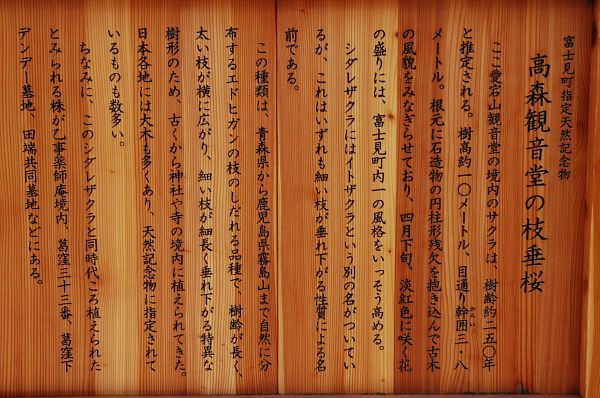 富士見町指定天然記念物
高森観音堂の枝垂桜
ここ愛宕山観音堂の境内のサクラは、樹齢約二五〇年
と推定される。樹高約一〇メートル、目通り幹囲三・八
かんい
メートル。根元に石造物の円柱形残欠を抱き込んで古木
の風貌をみなぎらせており、四月下旬、淡紅色に咲く花
の盛りには、富士見町内一の風格をいっそう高める。
シダレザクラにはイトザクラという別の名がついてい
るが、これはいずれも細い枝が垂れ下がる性質による名
前である。
この種類は、青森県から鹿児島県霧島山まで自然に分
布するエドヒガンの枝のしだれる品種で、樹齢が長く、
太い枝が横に広がり、細い枝が細長く垂れ下がる特異な
樹形のため、古くから神社や寺の境内に植えられてきた。
日本各地には大木も多くあり、天然記念物に指定されて
いるものも数多い。
ちなみに、このシダレザクラと同時代ころ植えられた
とみられる株が乙事薬師庵境内、葛窪三十三番、葛窪下
デンデー墓地、田端共同墓地などにある。